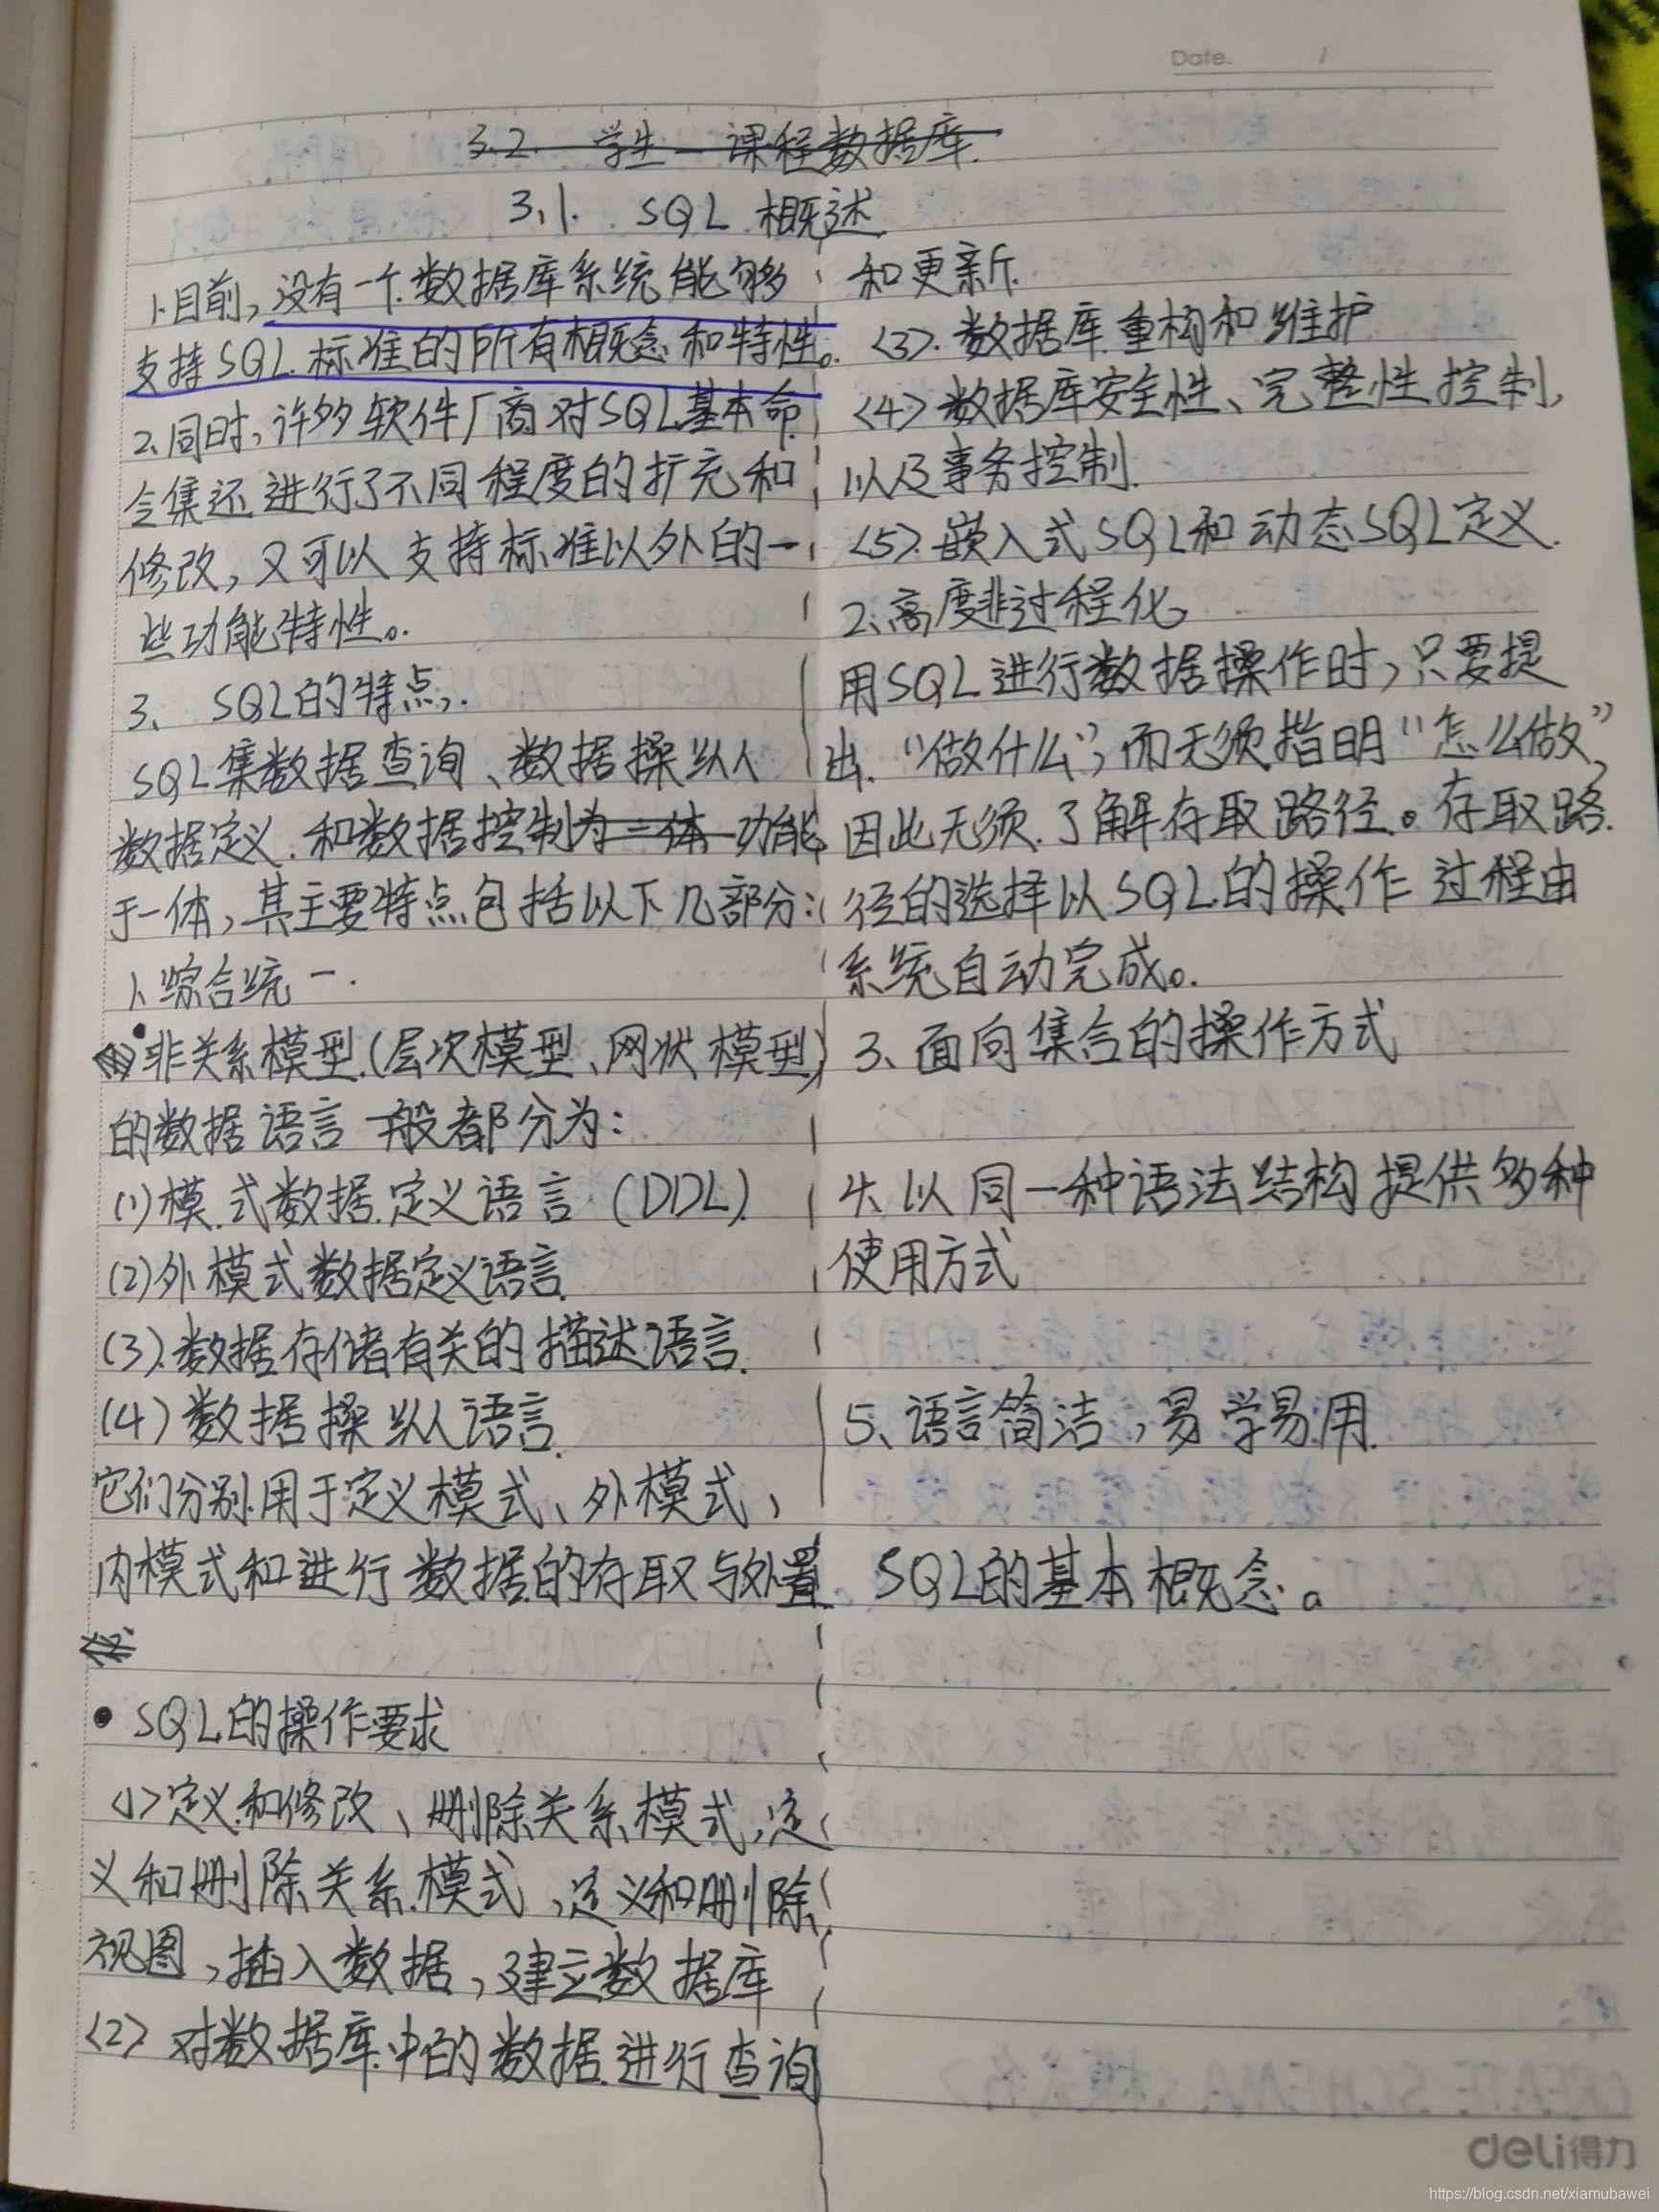 Date. /
3.2. 学生—课程数据库.
3.1. SQL 概述
1.目前,没有一个数据库系统能够
支持SQL标准的所有概念和特性。
2.同时,许多软件厂商对SQL基本命
令集还进行了不同程度的扩充和
修改,又可以支持标准以外的一
些功能特性。
3、SQL的特点,.
SQL集数据查询、数据操纵
数据定义.和数据控制为一体 功能
于一体,其主要特点包括以下几部分:
1、综合统一.
非关系模型(层次模型、网状模型)
的数据语言一般都分为:
(1)模式数据定义语言 (DDL)
(2)外模式数据定义语言.
(3).数据存储有关的描述语言.
(4)数据操纵语言.
它们分别用于定义模式、外模式、
内模式和进行数据的存取与处置
• SQL的操作要求
<1>定义和修改、删除关系模式,定
义和删除关系模式,定义和删除
视图,插入数据,建立数据库
<2> 对数据库中的数据进行查询
和更新.
<3>.数据库重构和维护
<4>数据库安全性、完整性控制,
以及事务控制.
<5>.嵌入式SQL和动态SQL定义.
2、高度非过程化
用SQL进行数据操作时,只要提
出.“做什么”,而无须指明“怎么做”,
因此无须了解存取路径。存取路
径的选择以SQL的操作过程由
系统自动完成。
3、面向集合的操作方式
4、以同一种语法结构提供多种
使用方式
5、语言简洁,易学易用.
SQL的基本概念。
deli得力
https://blog.csdn.net/xiamubawei